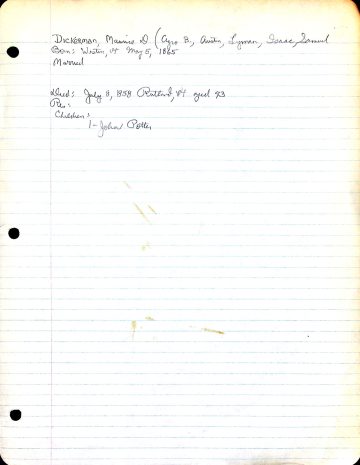 Dickerman, Maurice D (Azro B., Austin, Lyman, Isaac, Samuel
Born: Weston, Vt May 5, 1865
Married
Died: July 8, 1958 Rutland, Vt aged 93
Res:
Children:
1- John Potter